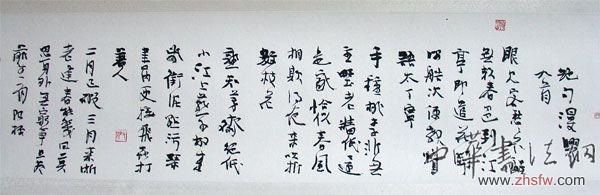 绝句漫興
九首
眼见客愁愁不醒
無賴春色到江
亭即遣花開
造次便教鶯
語太丁寧
手種桃李非無
主野老牆低還
是家恰似春風
相欺得夜來吹折
數枝花
熟知茅齋絕低
小江上燕子故來
頻銜泥點污琴
書內更接飛蟲打
著人
二月已破三月来漸
老逢春能幾回莫
思身外無窮事且盡
生前有限杯
中華書法網
www.zhsfw.com